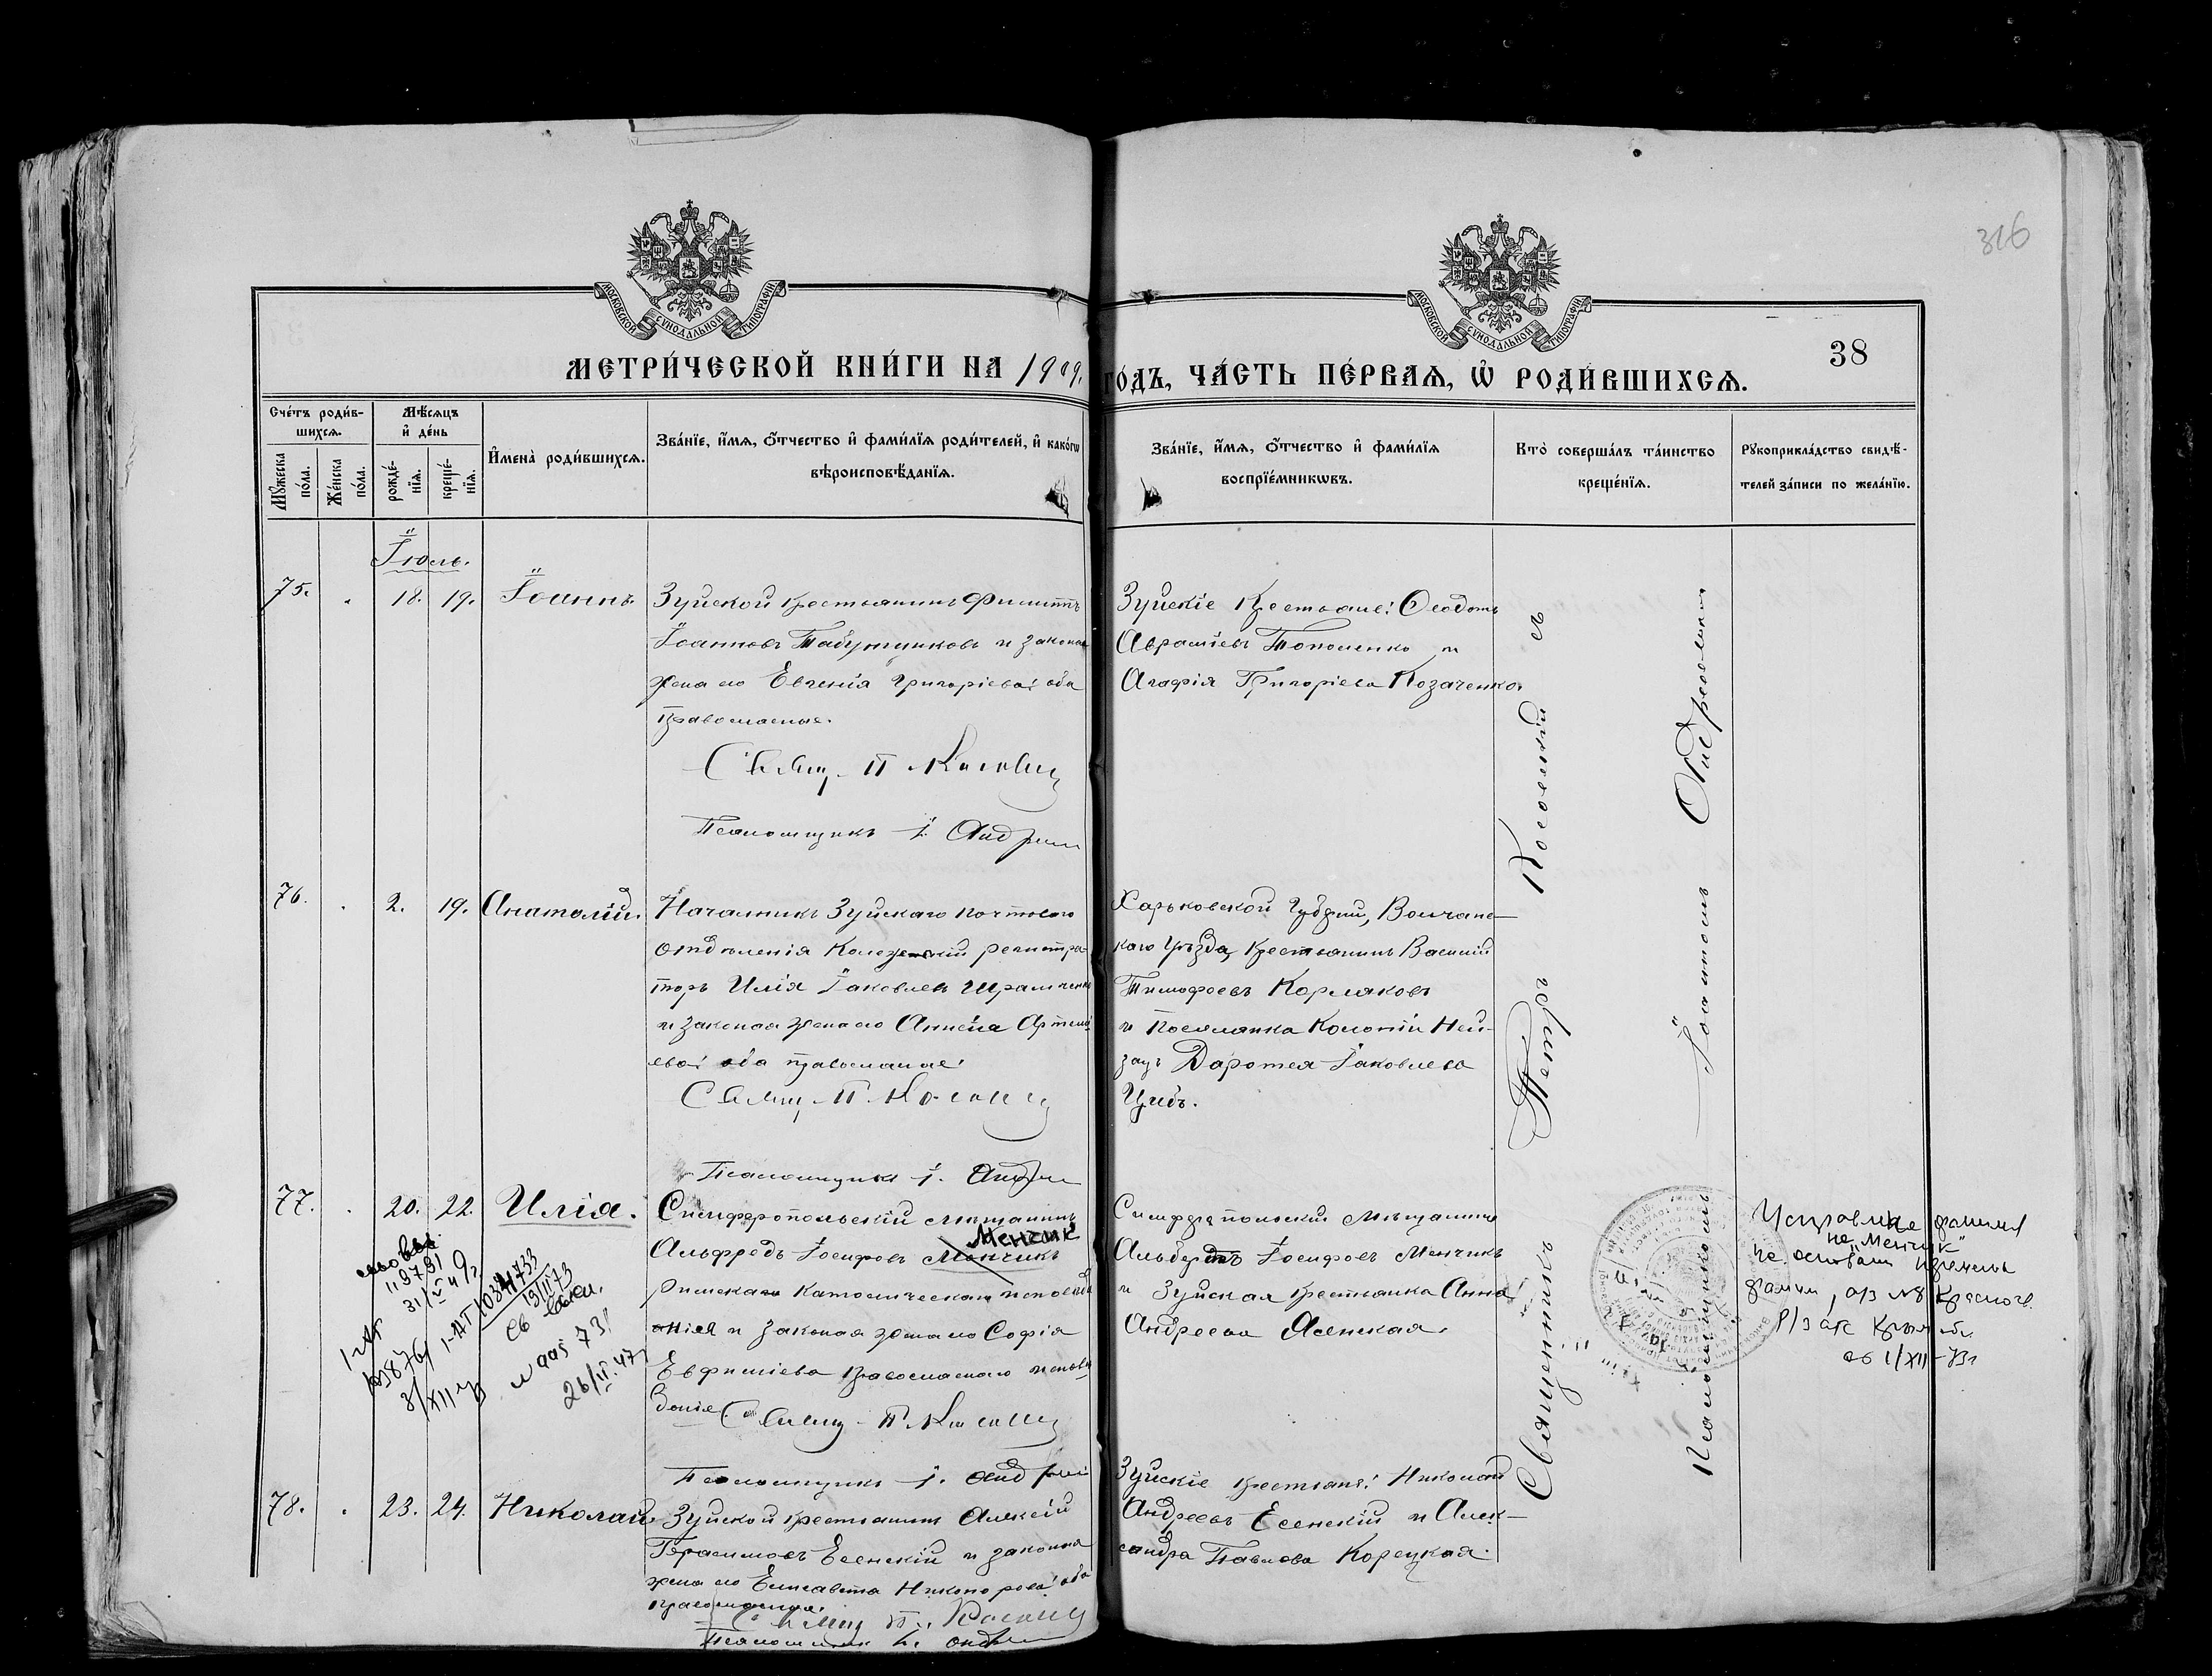 326
МОСКОВСКОЙ СѴНОДАЛЬНОЙ ТИПОГРАФІИ
МОСКОВСКОЙ СѴНОДАЛЬНОЙ ТИПОГРАФІИ
38
МЕТРИ́ЧЕСКОЙ КНИ́ГИ НА 1909.
ГО́ДЪ, ЧА́СТЬ ПЕ́РВАѦ, Ѡ РОДИ́ВШИХСѦ.
Сче́тъ роди́в-
шихсѧ.
Мꙋ́жеска по́ла.
Же́нска по́ла.
Мѣ́сѧцъ
и҆ де́нь
рожде́-
нїѧ.
креще́-
нїѧ.
И҆мена̀ роди́вшихсѧ.
Зва́нїе, и҆́мѧ, ѻ҆́тчество и҆ фами́лїѧ роди́телей, и҆ како́гѡ
вѣроисповѣ́данїѧ.
Зва́нїе, и҆́мѧ, ѻ҆́тчество и҆ фами́лїѧ
воспрїе́мникѡвъ.
Кто̀ соверша́лъ та́инство
креще́нїѧ.
Рꙋкоприкла́дство свидѣ́-
телей за́писи по жела́нїю.
Іюль.
75. 18. 19. Іоаннъ.
Зуйской крестьянинъ Филиппъ
Іоанновъ Табунщиковъ и законная
жена его Евгенія Григорьева: оба
православные.
Свящ. П. Косовскій
Псаломщикъ І. Андр
Зуйскіе Крестьяне: Ѳеодотъ
Авраміевъ Тополенко и
Агафія Григоріева Козаченко.
76. 2. 19. Анатолій.
Начальникъ Зуйскаго почтоваго
отдѣленія Колежскій регистра-
торъ Илія Іаковлевъ Шрамченко
и законая жена его Анисія Артемі
ева: оба православные:
Свящ. П. Косовскій
Псаломщикъ І. Андр
Харьковской Губерніи, Волчанс-
каго Уѣзда, крестьянинъ Василій
Тимофеевъ Корляковъ
и поселянка Колоніи Ней-
зацъ Даротея Іаковлева
77. 20. 22. Илія.
Симферопольскій мѣщанинъ
Менчик
Альфредъ Іосифовъ Менчикъ
римскаго католическаго исповѣд
анія и законая жена его Софія
Евфиміева православнаго исповѣ
данія.
Свящ. П. Косовскій
Псаломщикъ І. Андр
Симферопольскій мѣщанинъ
Альбертъ Іосифовъ Менчикъ
и Зуйская крестьянка Анна
Андреева Ясенская.
Исправлена фамилия
на "Менчик"
фамилии, а/з №8 Красногв.
от 1/XII-73г
78. 23. 24. Николай.
Зуйской крестьянинъ Алексій
Герасимовъ Есенскій и законная
жена его Елисавета Никонорова: оба
православные.
Свящ. П. Косовскій
Псаломщикъ І. Андр
Зуйскіе крестьяне: Николай
Андреевъ Есенскій и Алек-
сандра Павлова Корецкая.
Священникъ Петръ Косовскій и
Псаломщикъ Іоанникъ